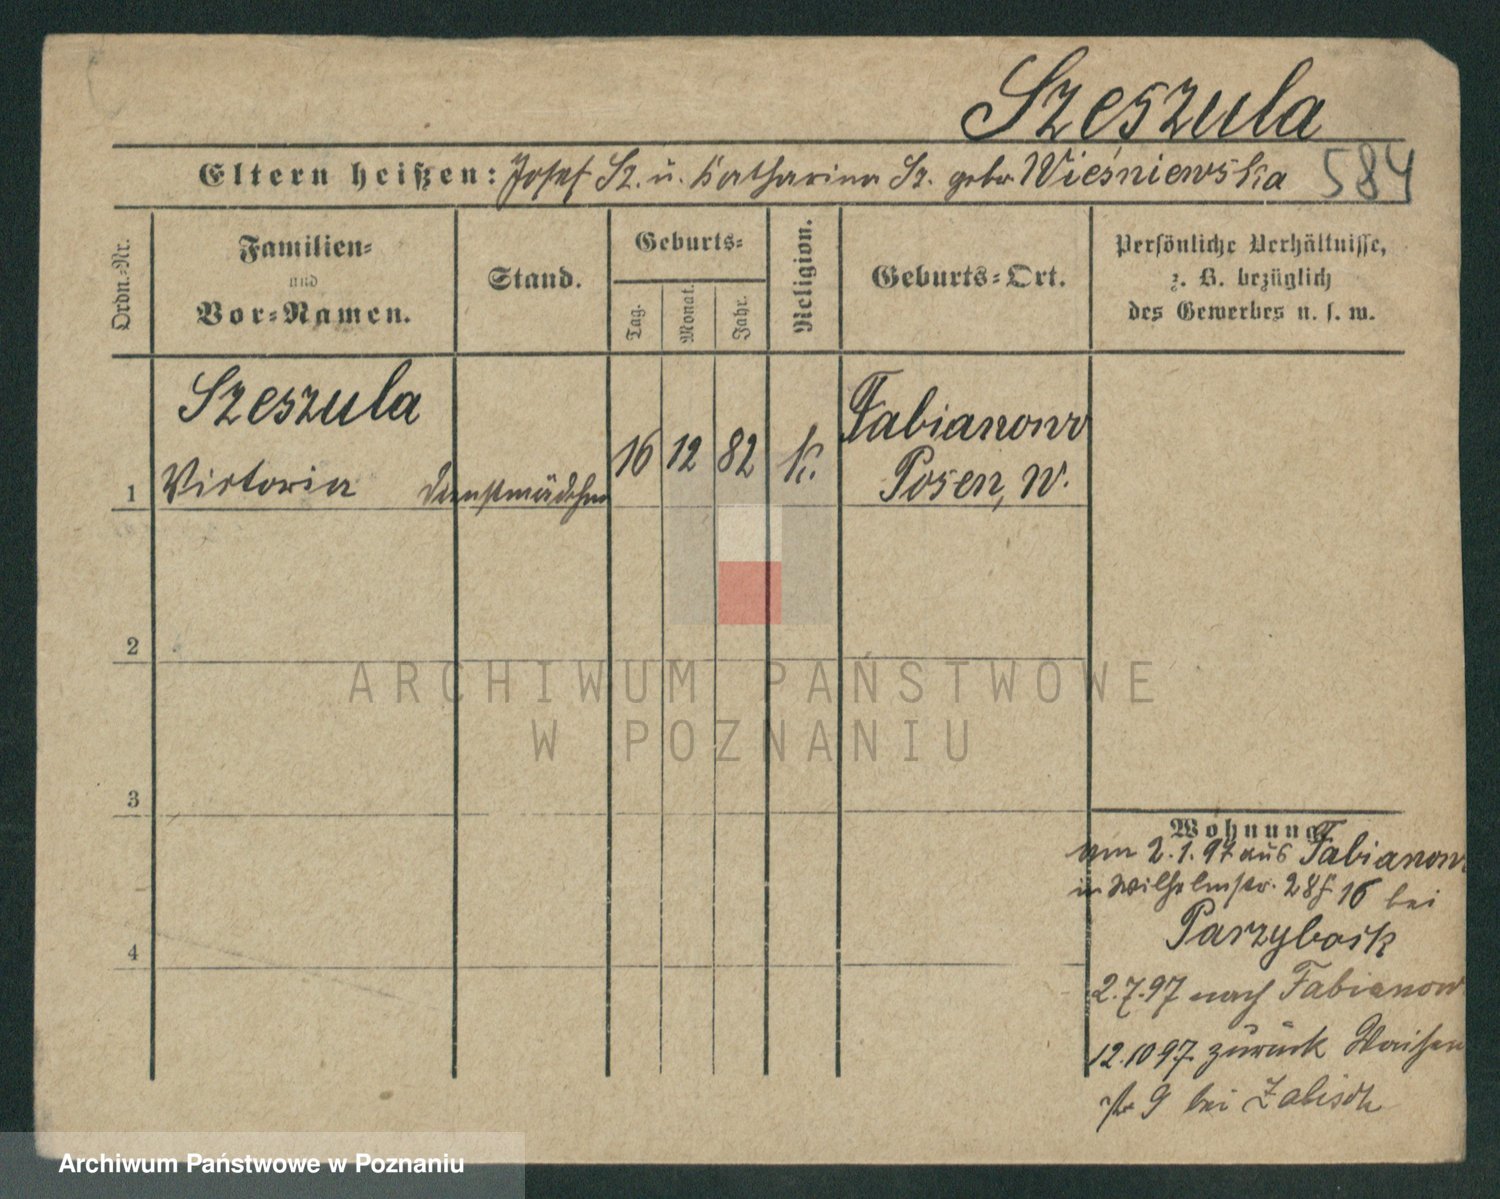 Szeszula
Eltern heißen: Josef Sz. u. Katharina Sz. gebor. Wieśniewska 584
Ordn.-Nr.
Familien-
und
Vor-Namen.
Stand.
Geburts-
Tag.
Monat.
Jahr.
Religion.
Geburts-Ort.
Persönliche Verhältnisse,
z. B. bezüglich
des Gewerbes u. s. w.
Szeszula
1 Victoria Dienstmädchen 16 12 82 k. Fabianowo
Posen, W.
2
3
4
ARCHIWUM PAŃSTWOWE
W POZNANIU
Wohnung
am 2.1.97 aus Fabianow
in Wilhelmstr. 28 16 bei
2.7.97 nach Fabianow
12.10 97 zurück Waisen
str 9 bei
Archiwum Państwowe w Poznaniu